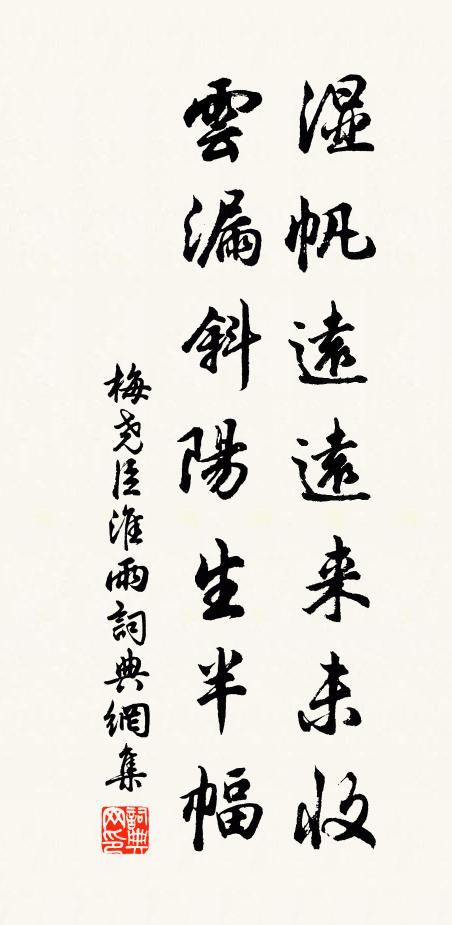 湿帆遠遠来未收
雲漏斜陽生半幅
梅尧臣淮雨詞典網集
詞典网印